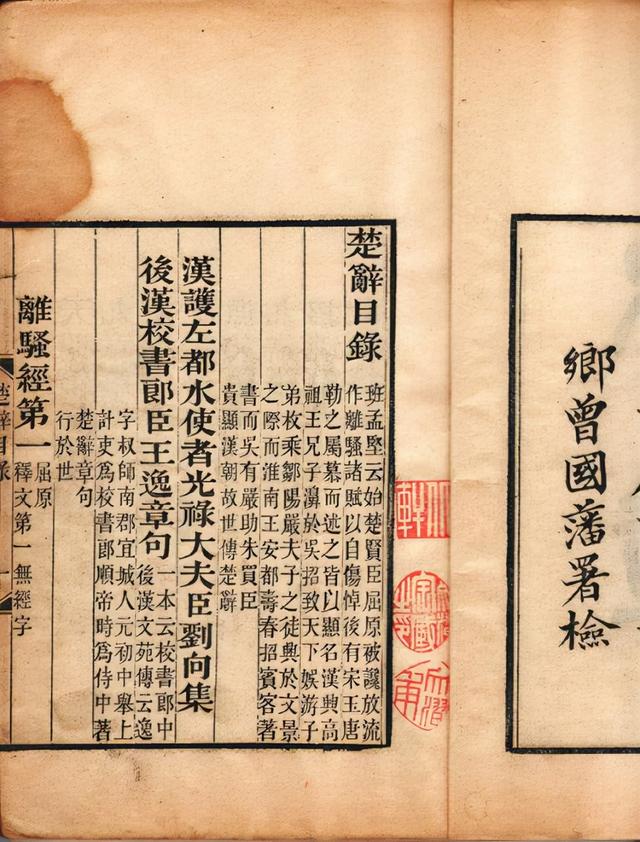 鄉曾國藩署檢
楚辭目錄
班孟堅云始楚賢臣屈原被讒放流
作離騷諸賦以自傷悼後有宋玉唐
勒之屬慕而述之皆以顯名漢興高
祖王兄子濞於吳招致天下娛游子
弟枚乘鄒陽嚴夫子之徒興於文景
之際而淮南王安都壽春招賓客著
書而吳有嚴助朱買臣
貴顯漢朝故世傳楚辭
漢護左都水使者光祿大夫臣劉向集
後漢校書郎臣王逸章句
一本云校書郎中
後漢文苑傳云逸
字叔師南郡宜城人元初中舉上
計吏爲校書郎順帝時爲侍中著
楚辭章句
行於世
離騷經第一
屈原
釋文第一無經字
楚辭目錄